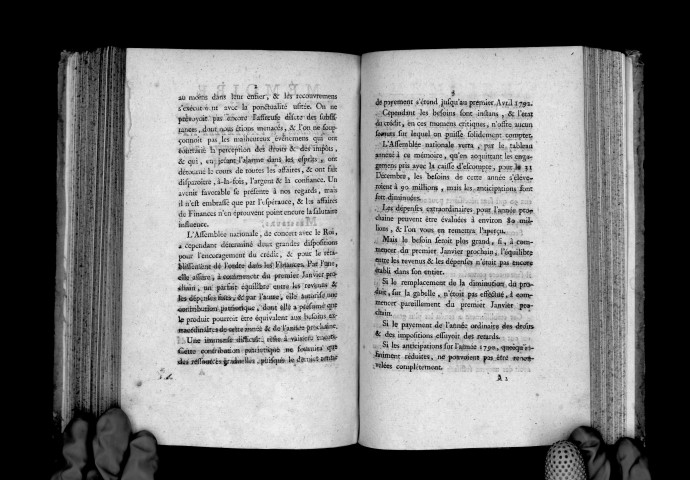 au moins dans leur entier, & les recouvremens
s'exécutent avec la ponctualité usitée. On ne
prévoyoit pas encore l'affreuse disette des subsis-
tances, dont nous étions menacés, & l'on ne soup-
çonnoit pas les malheureux événemens qui ont
contrarié la perception des droits & des impôts,
& qui, en jetant l'alarme dans les esprits, ont
détourné le cours de toutes les affaires, & ont fait
disparoître, à-la-fois, l'argent & la confiance. Un
avenir favorable se présente à nos regards, mais
il n'est embrassé que par l'espérance, & les affaires
de Finances n'en éprouvent point encore la salutaire
influence.
L'Assemblée nationale, de concert avec le Roi,
a cependant déterminé deux grandes dispositions
pour l'encouragement du crédit, & pour le réta-
blissement de l'ordre dans les Finances. Par l'une,
elle assure, à commencer du premier Janvier pro-
chain, un parfait équilibre entre les revenus &
les dépenses fixes, & par l'autre, elle autorise une
contribution patriotique, dont elle a présumé que
le produit pourroit être équivalent aux besoins ex-
traordinaires de cette année & de l'année prochaine.
Une immense difficulté reste à vaincre encore.
Cette contribution patriotique ne fournira que
des ressources graduelles, puisque le dernier terme
5
de payement s'étend jusqu'au premier Avril 1792.
Cependant les besoins sont instans, & l'état
du crédit, en ces momens critiques, n'offre aucun
secours sur lequel on puisse solidement compter.
L'Assemblée nationale verra, par le tableau
annexé à ce mémoire, qu'en acquittant les enga-
gemens pris avec la caisse d'escompte, pour le 31
Décembre, les besoins de cette année s'éleve-
roient à 90 millions, mais les anticipations sont
fort diminuées.
Les dépenses extraordinaires pour l'année pro-
chaine peuvent être évaluées à environ 80 mil-
lions, & l'on vous en remettra l'aperçu.
Mais le besoin seroit plus grand, si, à com-
mencer du premier Janvier prochain, l'équilibre
entre les revenus & les dépenses n'étoit pas encore
établi dans son entier.
Si le remplacement de la diminution du pro-
duit, sur la gabelle, n'étoit pas effectué, à com-
mencer pareillement du premier Janvier pro-
chain.
Si le payement de l'année ordinaire des droits
& des impositions essuyoit des retards.
Si les anticipations sur l'année 1790, quoiqu'in-
finiment réduites, ne pouvoient pas être renou-
vellées complètement.
A 3